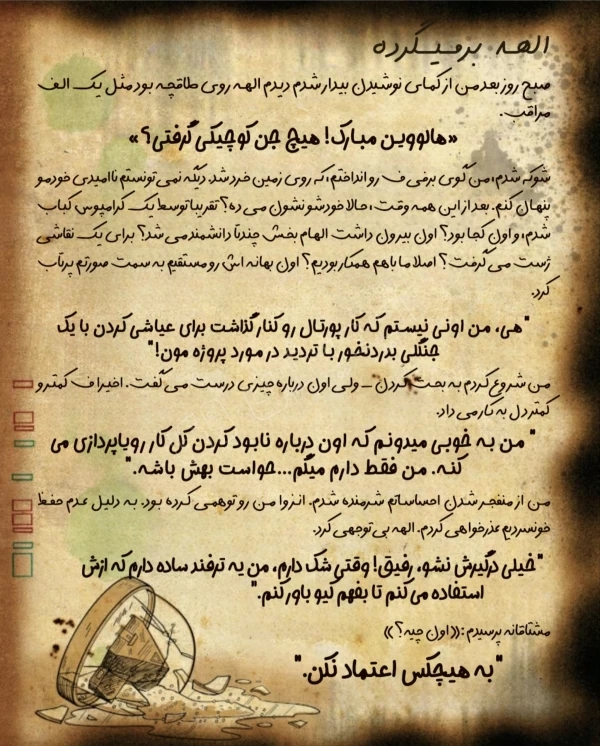 الهه برمیگرده
صبح روز بعد من از کمای نوشیدن بیدار شدم دیدم الهه روی طاقچه بود مثل یک الف
مراقب.
«هالووین مبارک! هیچ جن کوچیکی گرفتی؟»
شوکه شدم، من گوی برفی ف رو انداختم، که روی زمین خرد شد. دیگه نمی تونستم ناامیدی خودمو
پنهان کنم. بعد از این همه وقت، حالا خودشو نشون می ده؟ تقریبا توسط یک کرامپوس کباب
شدم، و اون کجا بود؟ اون بیرون داشت الهام بخش چندتا دانشمند می شد؟ برای یک نقاشی
ژست می گرفت؟ اصلا ما باهم همکار بودیم؟ اون بهانه اش رو مستقیم به سمت صورتم پرتاب
کرد.
"هی، من اونی نیستم که کار پورتال رو کنار گذاشت برای عیاشی کردن با یک
جنگلی بدردنخور با تردید در مورد پروژه مون!"
من شروع کردم به بحث کردن _ ولی اون درباره چیزی درست می گفت. اخیرا ف کمتر و
کمتر دل به کار می داد.
" من به خوبی میدونم که اون درباره نابود کردن کل کار رویاپردازی می
کنه. من فقط دارم میگم...حواست بهش باشه."
من از منفجر شدن احساساتم شرمنده شدم. انزوا من رو توهمی کرده بود. به دلیل عدم حفظ
خونسردیم عذرخواهی کردم. الهه بی توجهی کرد.
"خیلی درگیرش نشو، رفیق! وقتی شک دارم، من یه ترفند ساده دارم که ازش
استفاده می کنم تا بفهم کیو باور کنم."
مشتاقانه پرسیدم:«اون چیه؟»
"به هیچکس اعتماد نکن."